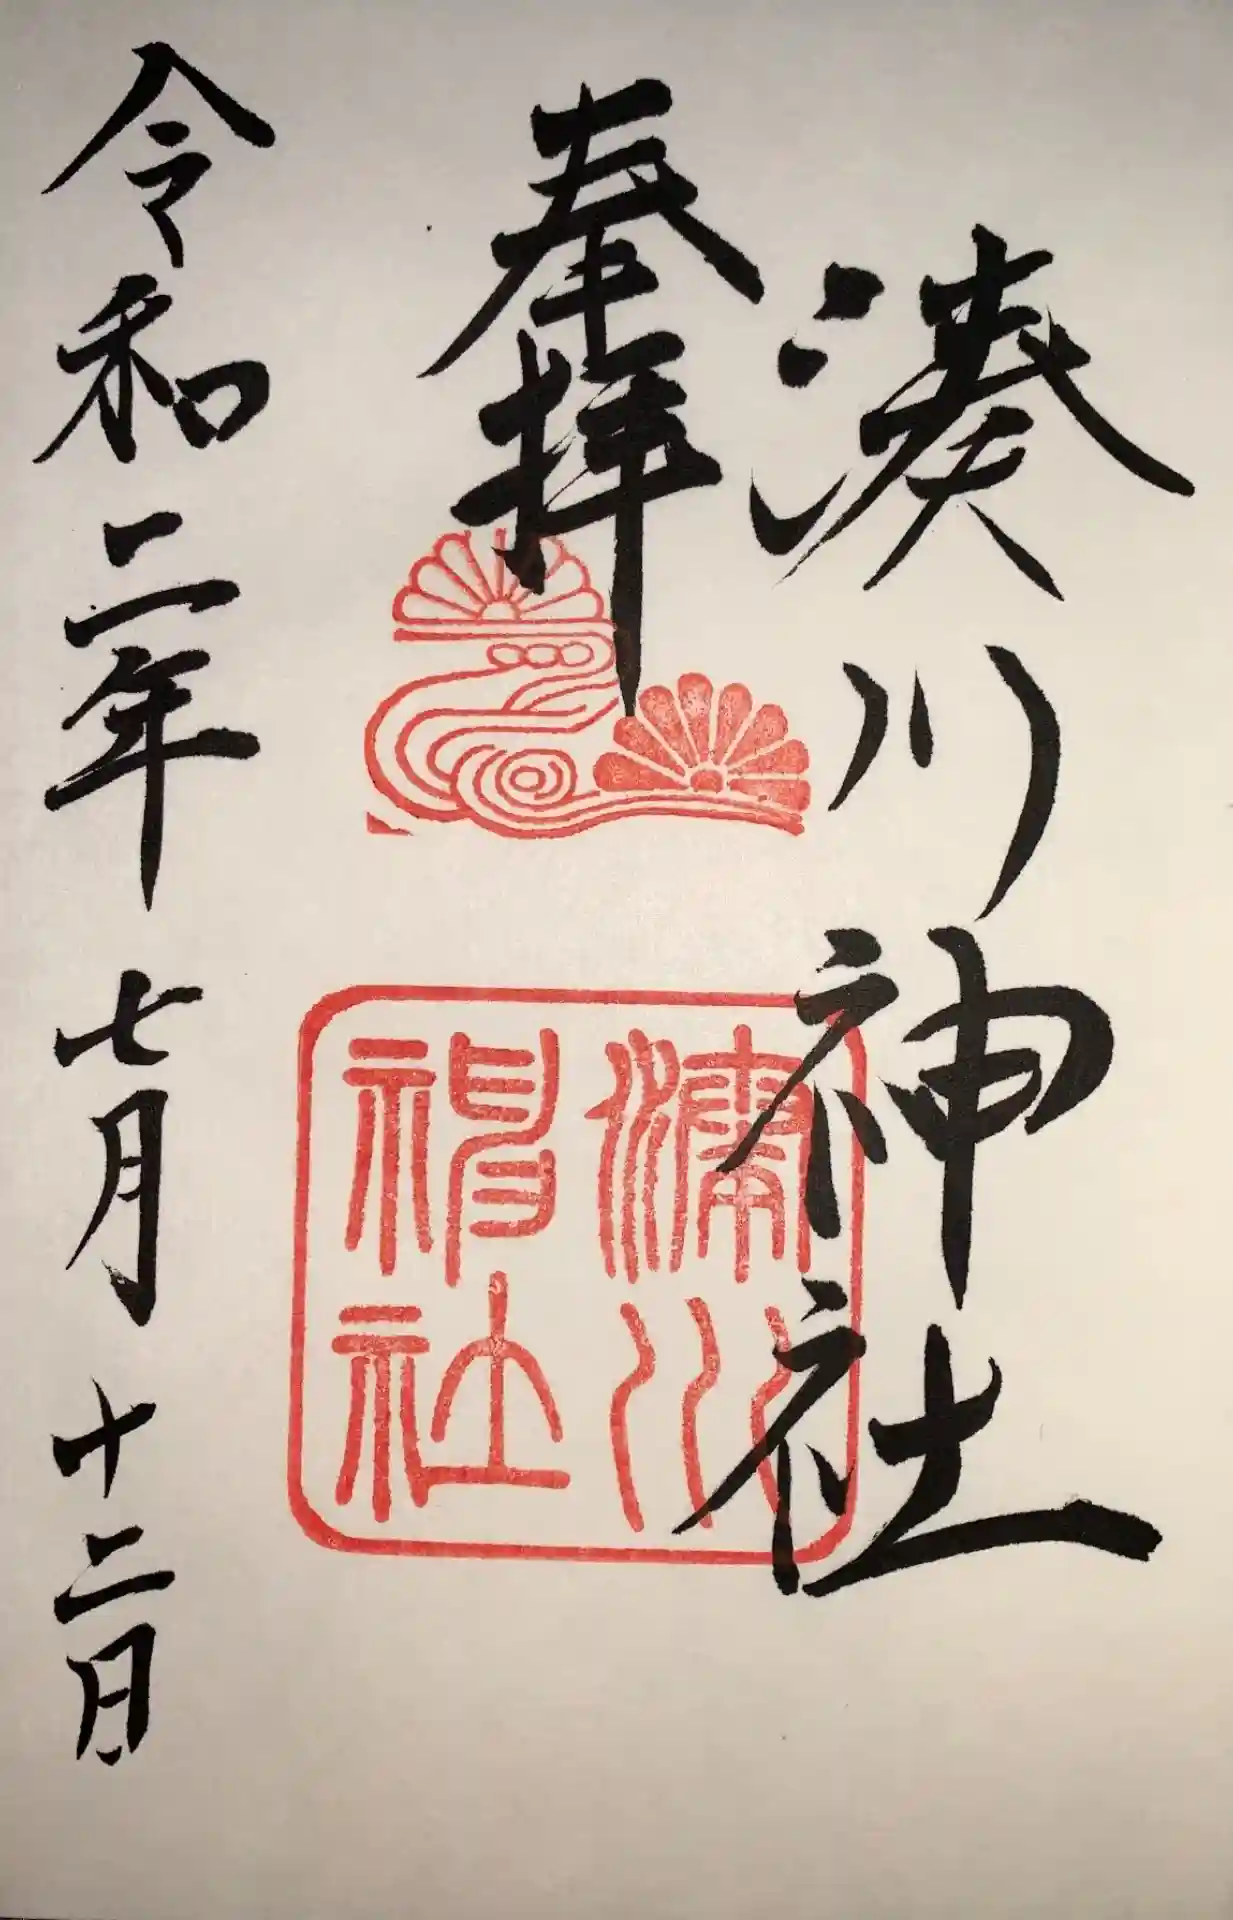 湊川神社
奉拝
令和二年
七月十二日
湊川
神社